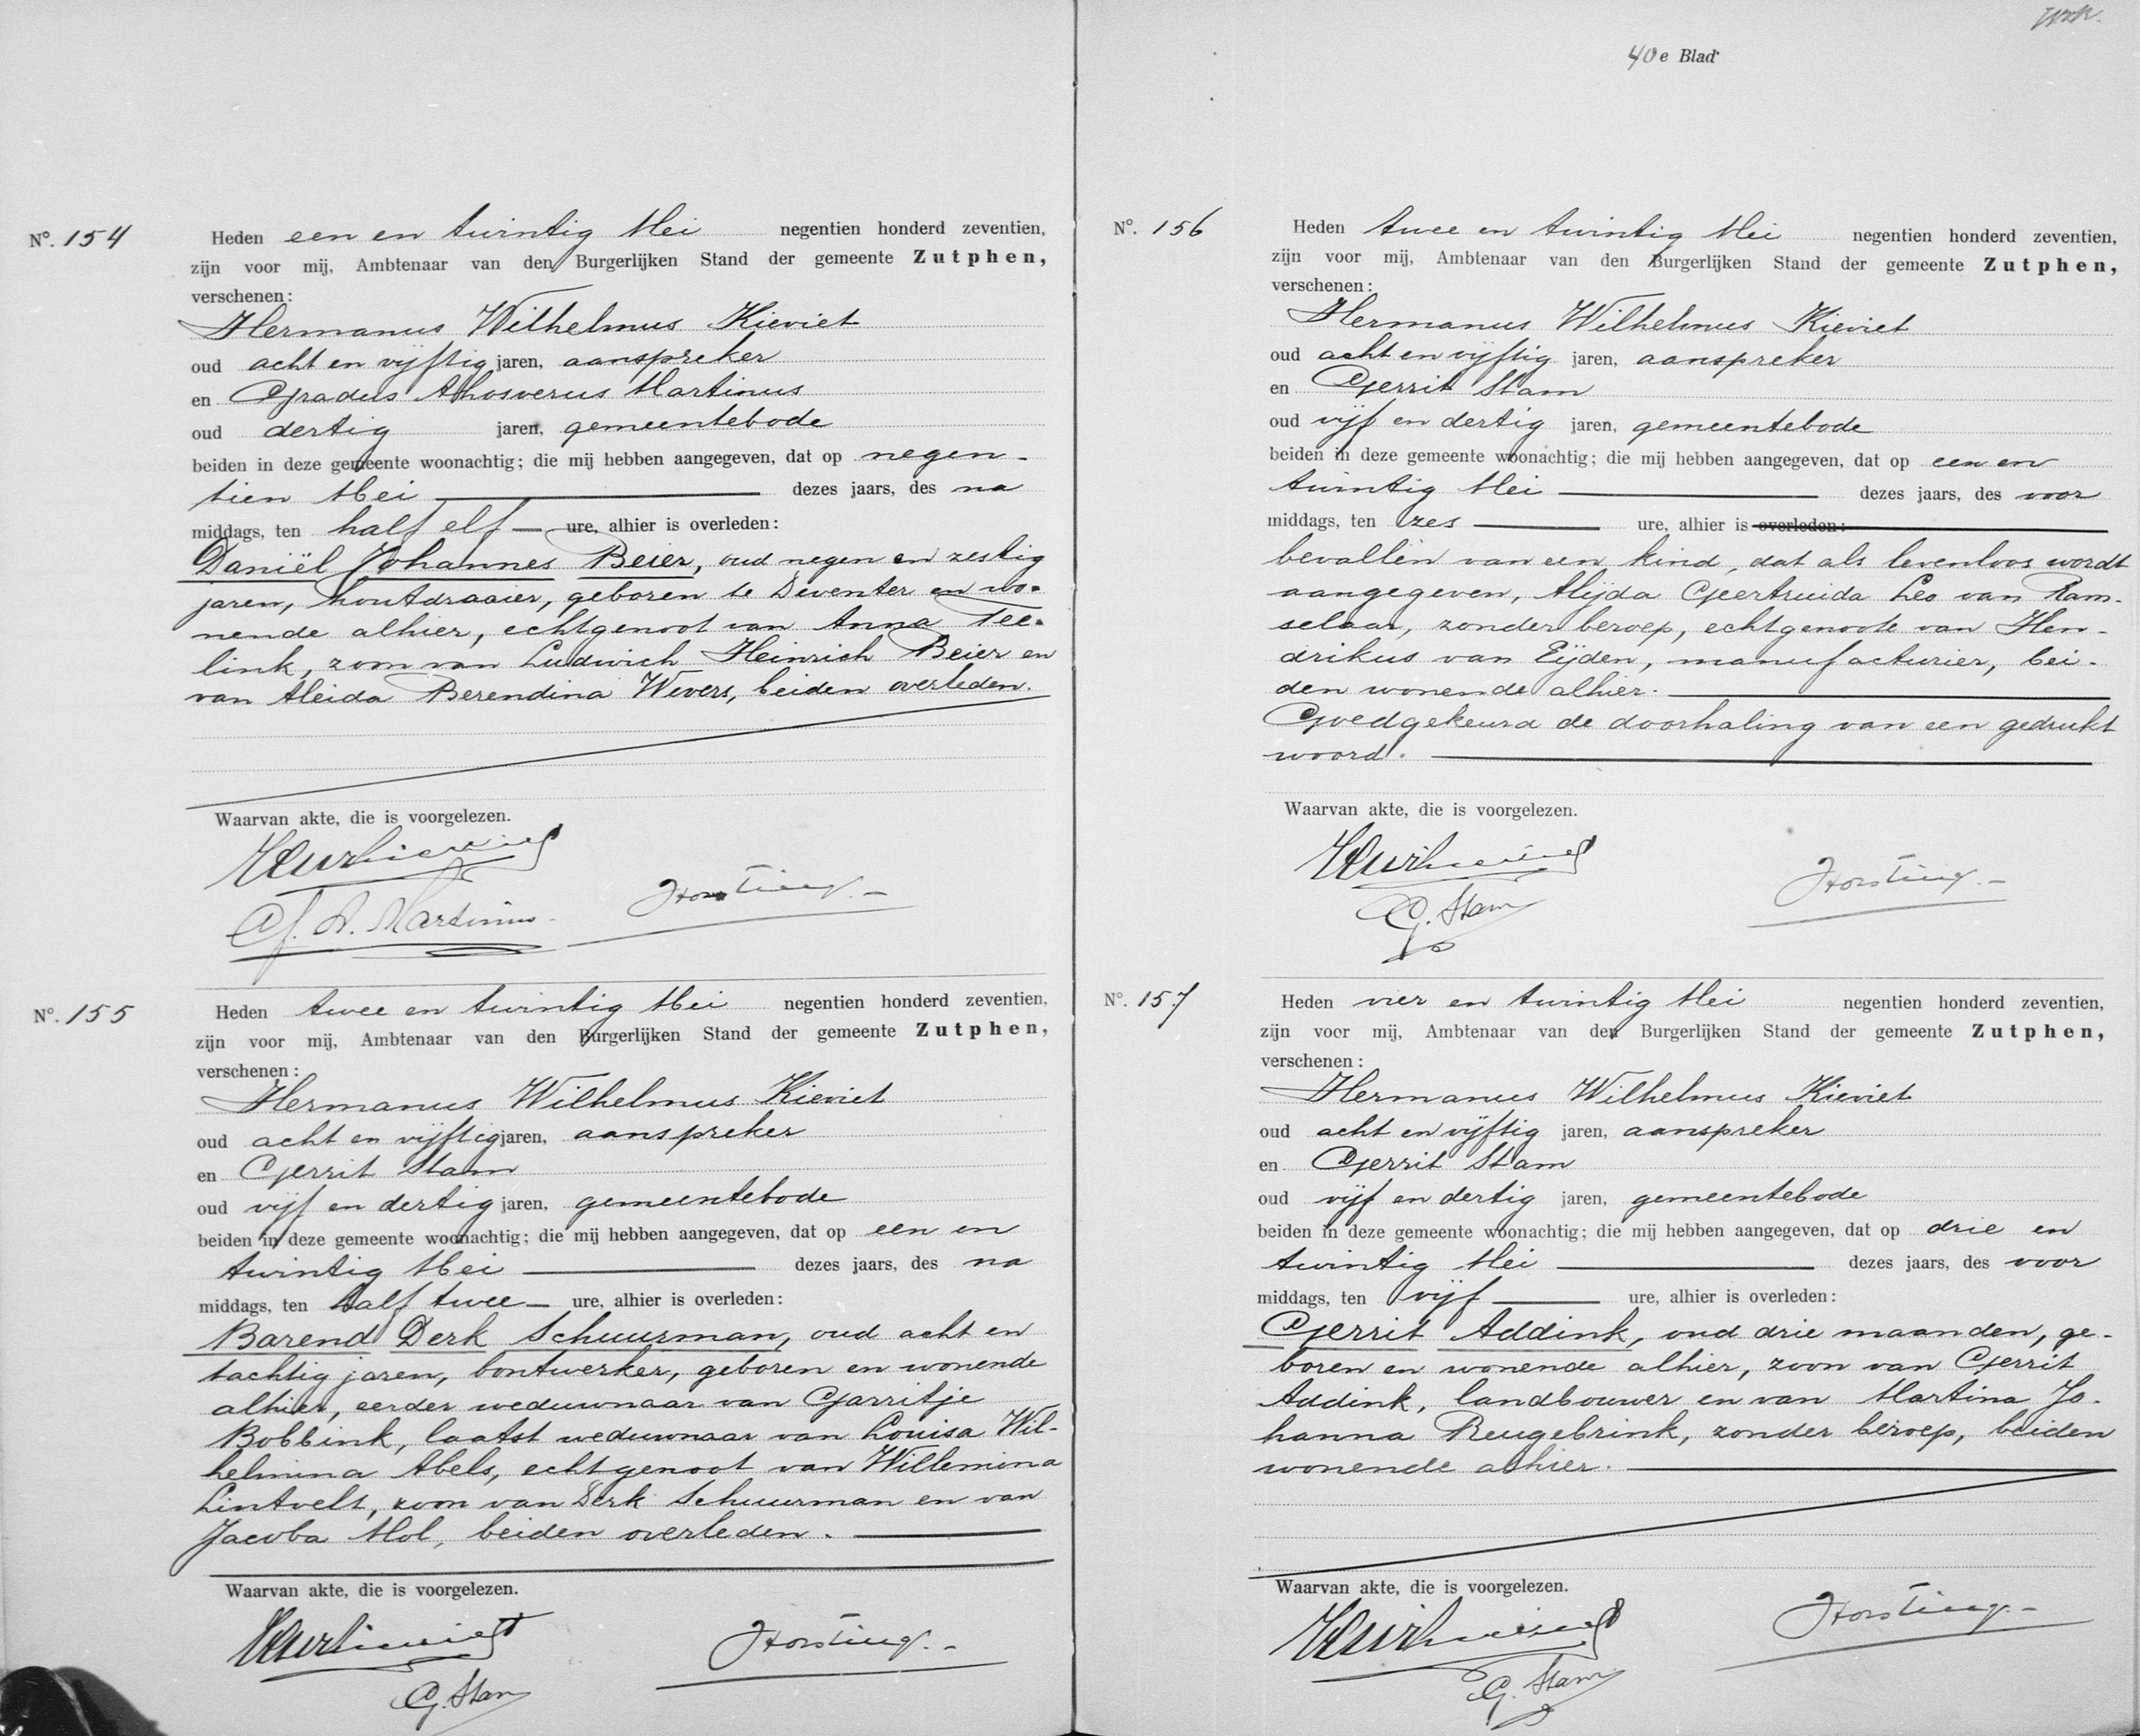 No. 154
Heden een en twintig Mei negentien honderd zeventien,
zijn voor mij, Ambtenaar van den Burgerlijken Stand der gemeente Zutphen,
verschenen:
Hermanus Wilhelmus Kieviet
oud acht en vijftig jaren, aanspreker
en Gradus Ahosverus Martinus
oud dertig jaren, gemeentebode
beiden in deze gemeente woonachtig; die mij hebben aangegeven, dat op negen-
tien Mei dezes jaars, des na
middags, ten half elf ure, alhier is overleden:
Daniël Johannes Beier, oud negen en zestig
jaren, houtdraaier, geboren te Deventer en wo-
nende alhier, echtgenoot van Anna Tee-
link, zoon van Ludwich Heinrich Beier en
van Aleida Berendina Wevers, beiden overleden.
Waarvan akte, die is voorgelezen.
G. A. Martinus
Horsting
No. 155
Heden twee en twintig Mei negentien honderd zeventien,
zijn voor mij, Ambtenaar van den Burgerlijken Stand der gemeente Zutphen,
verschenen:
Hermanus Wilhelmus Kieviet
oud acht en vijftig jaren, aanspreker
en Gerrit Stam
oud vijf en dertig jaren, gemeentebode
beiden in deze gemeente woonachtig; die mij hebben aangegeven, dat op een en
twintig Mei dezes jaars, des na
middags, ten half twee ure, alhier is overleden:
Barend Derk Schuurman, oud acht en
tachtig jaren, bontwerker, geboren en wonende
alhier, eerder weduwnaar van Garritje
Bobbink, laatst weduwnaar van Louisa Wil-
helmina Abels, echtgenoot van Willemina
Lintvelt, zoon van Derk Schuurman en van
Jacoba Mol, beiden overleden.
Waarvan akte, die is voorgelezen.
Horsting
G. Stam
40e Blad
No. 156
Heden twee en twintig Mei negentien honderd zeventien,
zijn voor mij, Ambtenaar van den Burgerlijken Stand der gemeente Zutphen,
verschenen:
Hermanus Wilhelmus Kieviet
oud acht en vijftig jaren, aanspreker
en Gerrit Stam
oud vijf en dertig jaren, gemeentebode
beiden in deze gemeente woonachtig; die mij hebben aangegeven, dat op een en
twintig Mei dezes jaars, des voor
middags, ten zes ure, alhier is overleden:
bevallen van een kind, dat als levenloos wordt
aangegeven, Alijda Geertruida Leo van Ram-
selaar, zonder beroep, echtgenoote van Hen-
drikus van Eijden, manufacturier, bei-
den wonende alhier.
Goedgekeurd de doorhaling van een gedrukt
woord.
Waarvan akte, die is voorgelezen.
Horsting
G. Stam
No. 157
Heden vier en twintig Mei negentien honderd zeventien,
zijn voor mij, Ambtenaar van den Burgerlijken Stand der gemeente Zutphen,
verschenen:
Hermanus Wilhelmus Kieviet
oud acht en vijftig jaren, aanspreker
en Gerrit Stam
oud vijf en dertig jaren, gemeentebode
beiden in deze gemeente woonachtig; die mij hebben aangegeven, dat op drie en
twintig Mei dezes jaars, des voor
middags, ten vijf ure, alhier is overleden:
Gerrit Addink, oud drie maanden, ge-
boren en wonende alhier, zoon van Gerrit
Addink, landbouwer en van Martina Jo-
hanna Reugebrink, zonder beroep, beiden
wonende alhier.
Waarvan akte, die is voorgelezen.
Horsting
G. Stam